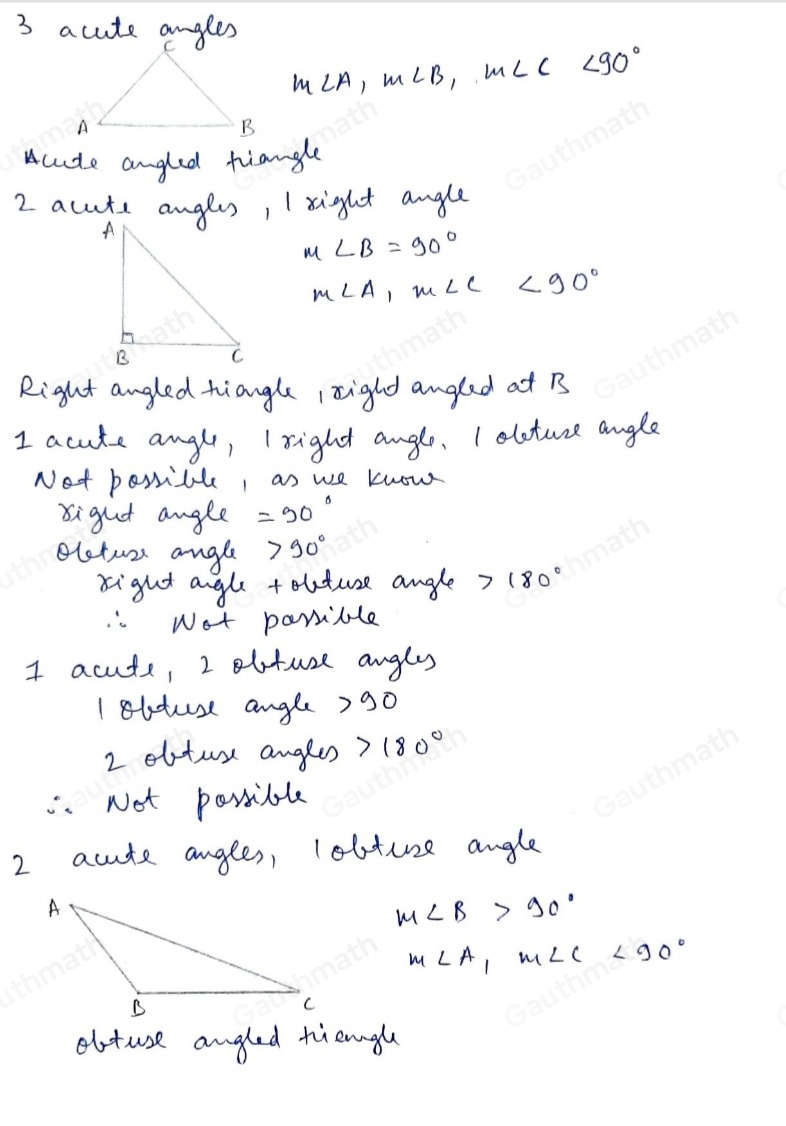 3 acute angles
C
m∠A, m∠B, m∠C <90°
A
B
Acute angled triangle
2 acute angles, 1 right angle
A
m ∠B = 90°
m∠A, m∠C <90°
B
C
Right angled triangle, right angled at B
1 acute angle, 1 right angle, 1 obtuse angle
Not possible, as we know
right angle = 90°
Obtuse angle > 90°
right angle + obtuse angle > 180°
∴ Not possible
1 acute, 2 obtuse angles
1 obtuse angle > 90
2 obtuse angles > 180°
∴ Not possible
2 acute angles, 1 obtuse angle
A
m∠B > 90°
m∠A, m∠C < 90°
B
C
obtuse angled triangle
Gauthmath